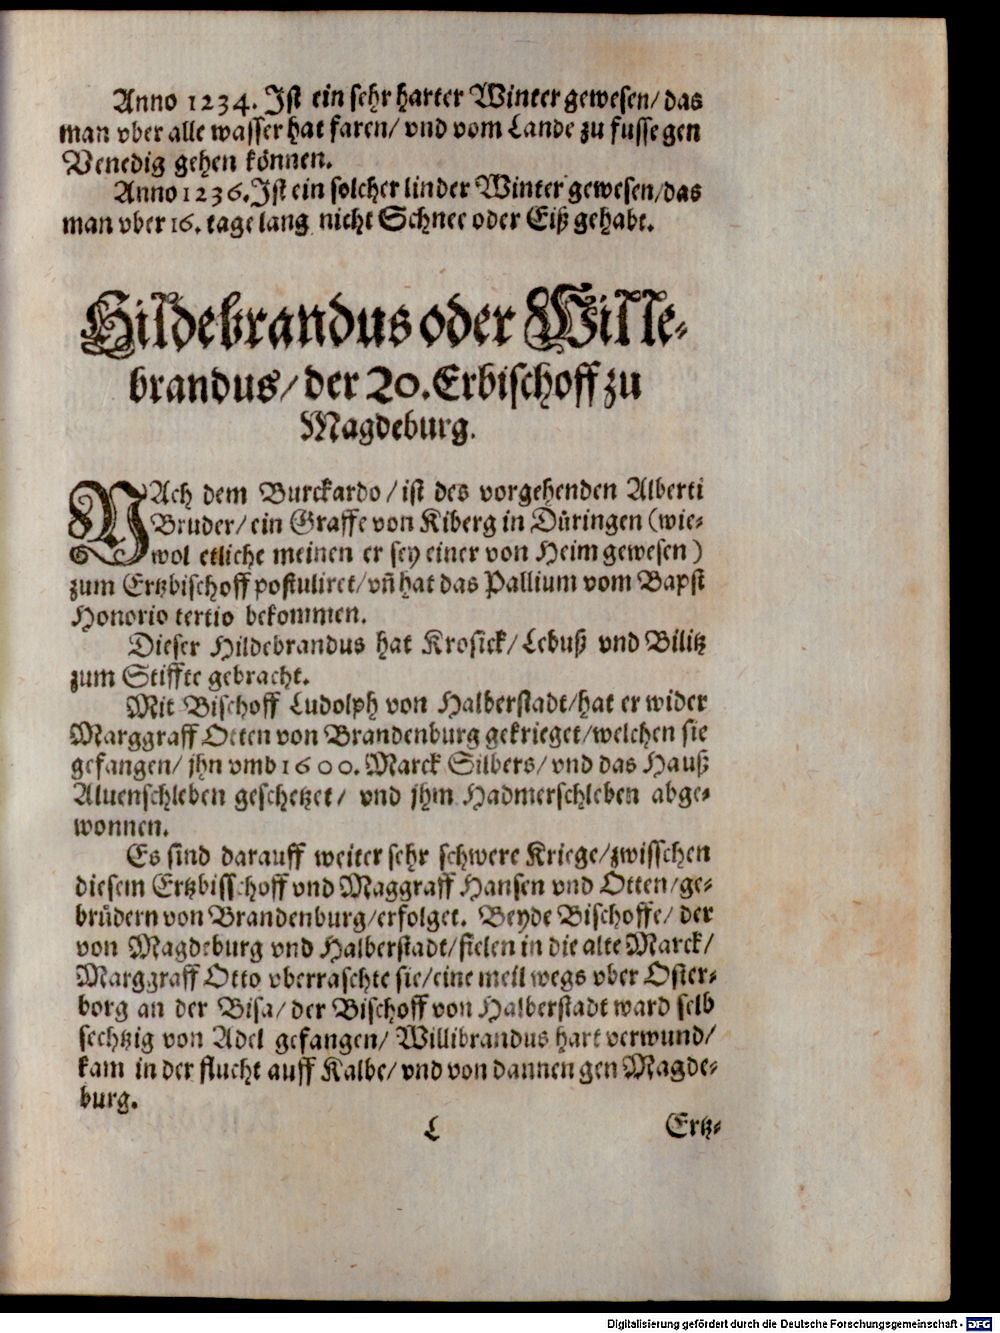 Anno 1234. Ist ein sehr harter Winter gewesen/ das
man vber alle wasser hat faren/ vnd vom Lande zu fusse gen
Venedig gehen können.
Anno 1236. Ist ein solcher linder Winter gewesen/ das
man vber 16. tage lang nicht Schnee oder Eiß gehabt.
Hildebrandus oder Wille-
brandus/ der 20. Erbischoff zu
Magdeburg.
NAch dem Burckardo/ ist des vorgehenden Alberti
Bruder/ ein Graffe von Kiberg in Düringen (wie-
wol etliche meinen er sey einer von Heim gewesen)
zum Ertzbischoff postuliret/ vñ hat das Pallium vom Bapst
Honorio tertio bekommen.
Dieser Hildebrandus hat Krosick/ Lebuß vnd Bilitz
zum Stiffte gebracht.
Mit Bischoff Ludolph von Halberstadt/ hat er wider
Marggraff Otten von Brandenburg gekrieget/ welchen sie
gefangen/ jhn vmb 1600. Marck Silbers/ vnd das Hauß
Aluenschleben geschetzet/ vnd jhm Hadmerschleben abge-
wonnen.
Es sind darauff weiter sehr schwere Kriege/ zwisschen
diesem Ertzbisschoff vnd Maggraff Hansen vnd Otten/ ge-
brüdern von Brandenburg/ erfolget. Beyde Bischoffe/ der
von Magdeburg vnd Halberstadt/ fielen in die alte Marck/
Marggraff Otto vberraschte sie/ eine meil wegs vber Oster-
borg an der Bisa/ der Bischoff von Halberstadt ward selb
sechtzig von Adel gefangen/ Willibrandus hart verwund/
kam in der flucht auff Kalbe/ vnd von dannen gen Magde-
burg.
L Ertz-
Digitalisierung gefördert durch die Deutsche Forschungsgemeinschaft - DFG